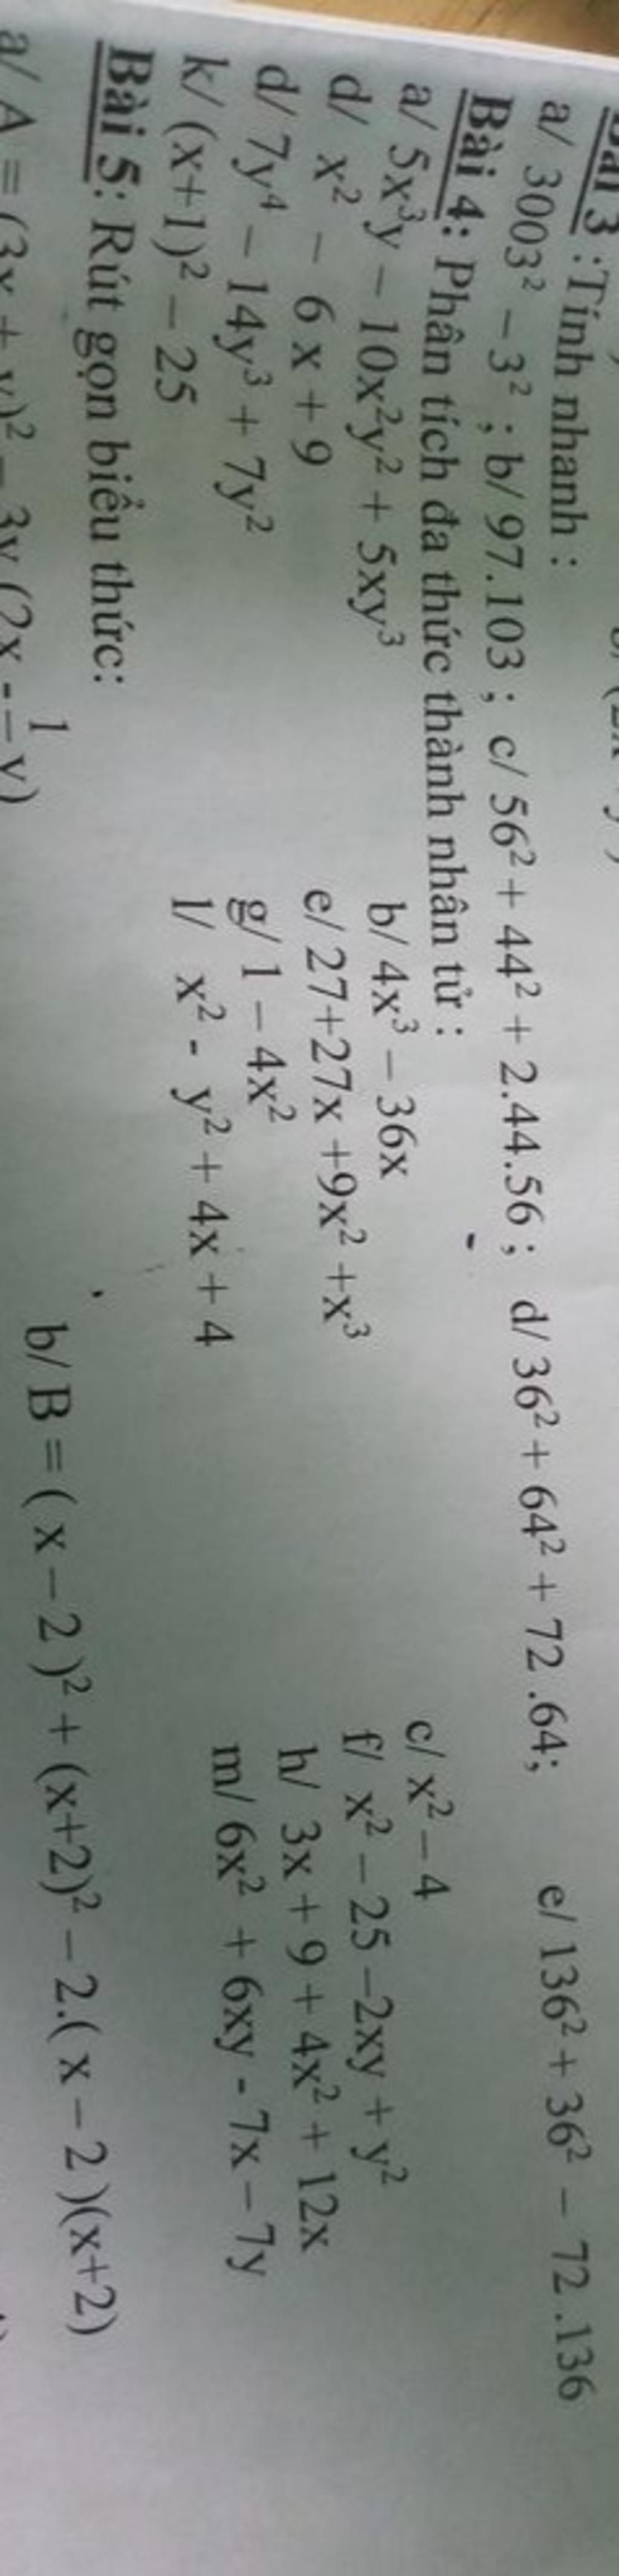 3 : Tính nhanh :
a/ 3003² – 3² ; b/ 97.103 ; c/ 56² + 44² + 2.44.56 ; d/ 36² + 64² + 72 .64; e/ 136² + 36² – 72 .136
Bài 4: Phân tích đa thức thành nhân tử :
a/ 5x³y – 10x²y² + 5xy³ b/ 4x³ – 36x c/ x² – 4
d/ x² – 6 x + 9 e/ 27+27x +9x² +x³ f/ x² – 25 –2xy + y²
d/ 7y⁴ – 14y³ + 7y² g/ 1 – 4x² h/ 3x + 9 + 4x² + 12x
k/ (x+1)² – 25 l/ x² - y² + 4x + 4 m/ 6x² + 6xy - 7x – 7y
Bài 5: Rút gọn biểu thức:
a/ A = (3x + y)² – 3y (2x - 1 y) b/ B = ( x – 2 )² + (x+2)² – 2.( x – 2 )(x+2)